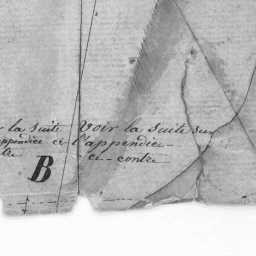 r la suite Voir la suite sur
appendice ci- l'appendice
tre ci-contre
B